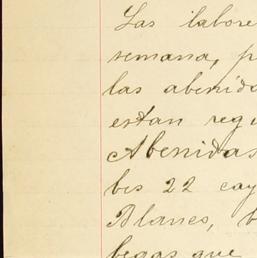 Las labore
semana, p
las abenida
estan regu
Abenidas
bes 22 cay
Blanes, b
begas que